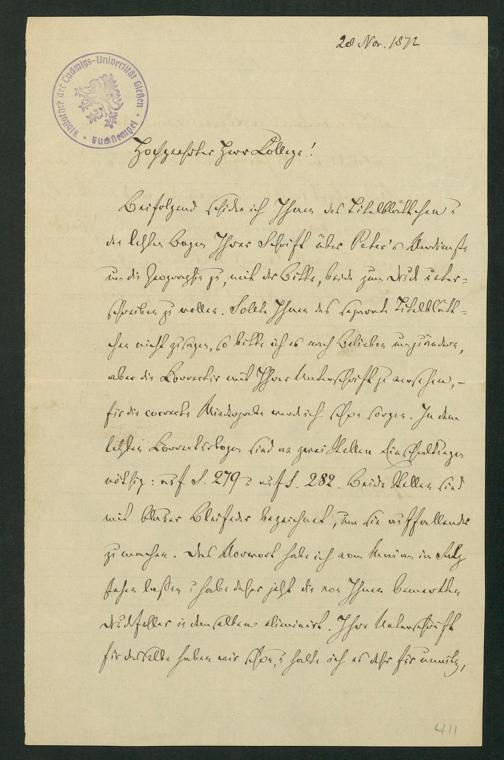 28 Nov. 1872
Bibliothek der Ludwigs-Universität Gießen
Buchstempel
Hochgeehrter Herr College!
Beifolgend schicke ich Ihnen das Titelblättchen u
den letzten Bogen Ihrer Schrift über Peter's Verdienste
um die Geographie zu, mit der Bitte, beide zum Druck unter-
schreiben zu wollen. Sollte Ihnen das separate Titelblätt-
chen nicht zusagen, so bitte ich es nach Belieben umzuändern,
aber die Correctur mit Ihrer Unterschrift zu versehen, –
für die correcte Wiedergabe werde ich schon sorgen. In dem
letzten Correcturbogen sind an zwei Stellen Einschaltungen
nöthig: auf S. 279 u auf S. 282. Beide Stellen sind
mit blauer Bleifeder bezeichnet, um sie auffallender
zu machen. Das Vorwort habe ich vom in Satz
stehen lassen u habe daher jetzt die von Ihnen bemerkten
Druckfehler in demselben eliminirt. Ihre Unterschrift
für dasselbe haben wir schon, u halte ich es daher für unnütz,
411